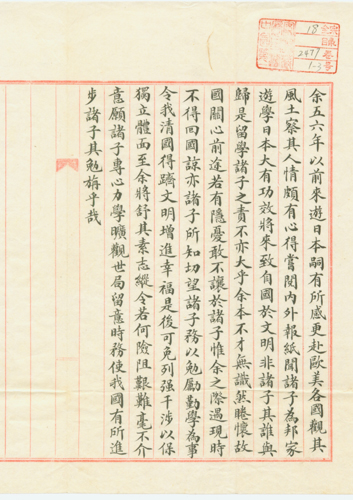 余五六年以前来遊日本嗣有所感更赴歐美各國觀其
風土察其人情頗有心得嘗閱内外報紙聞諸子為邦家
遊學日本大有功效將来致自國於文明非諸子其誰與
歸是留學諸子之責不亦大乎余本不才無識然睠懷故
國關心前途若有隱憂敢不讓於諸子惟余之際遇現時
不得回國諒亦諸子所知切望諸子務以勉勵勤學為事
令我清國得躋文明增進幸福是後可免列强干涉以保
獨立體面至余將舒其素志縱令若何險阻艱難毫不介
意願諸子專心力學曠觀世局留意時務使我國有所進
步諸子其勉旃乎哉
18
2471
1-3